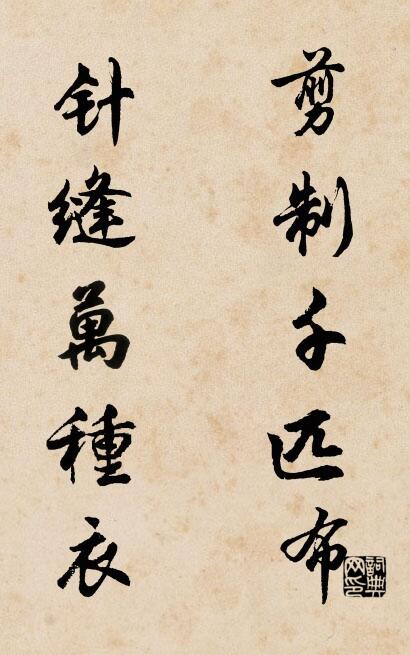 剪制千匹布
针缝萬種衣
詞典網印